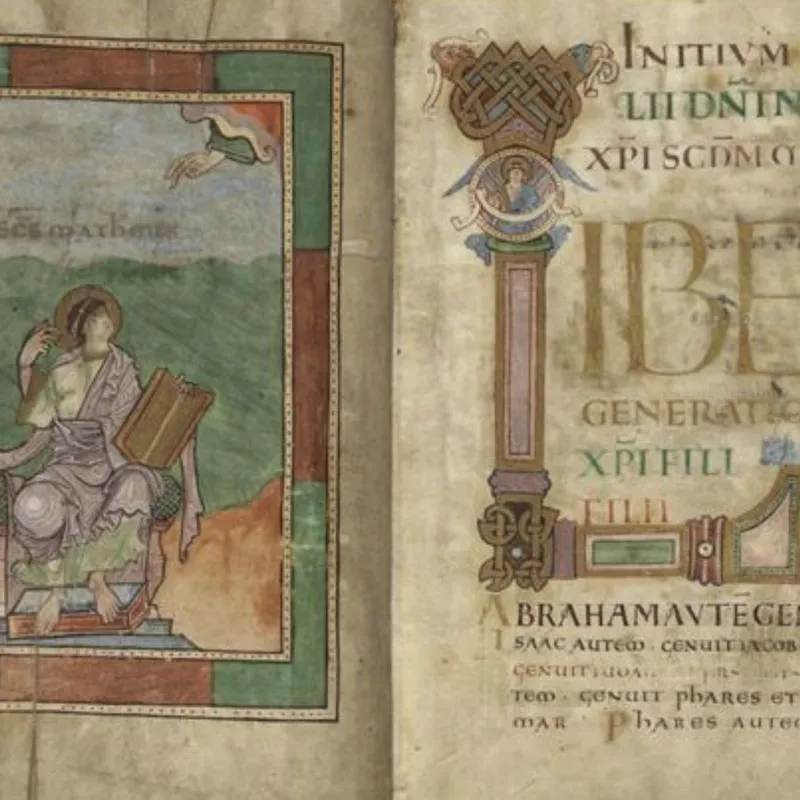 scs matheus
INITIVM
LII DN̄I N
XP̄I SCDM
LIBE
GENERATIO
XP̄I FILI
FILII
ABRAHAM AVTĒ GEN
ISAAC AUTEM · GENUIT IACOB
GENUIT IUDA
TEM · GENUIT PHARES ET
MAR PHARES AUTEM